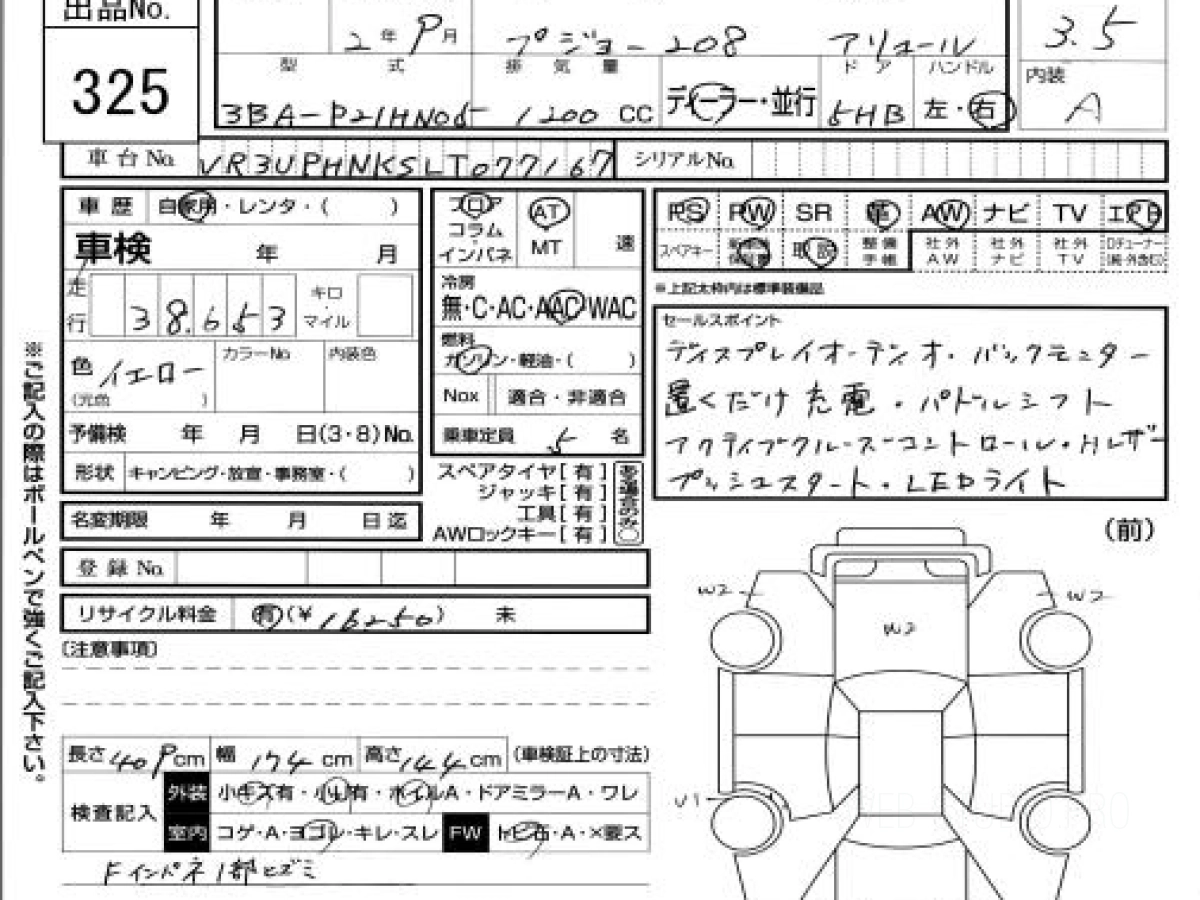 出品No.
325
2年 9月 プジョー 208 アリュール
3.5
型式 排気量 ドア ハンドル
内装
A
3BA-P21HN05 1200 CC ディーラー・並行 5HB 左・右
車台No. VR3UPHNKSLT077167 シリアルNo.
車歴 自家用・レンタ・( )
車検 年 月
走行 38,653 キロ・マイル
色 イエロー カラーNo. 内装色
(元色 )
予備検 年 月 日(3・8)No.
形状 キャンピング・放宣・事務室・( )
名変期限 年 月 日迄
フロア・コラム・インパネ AT MT 速
冷房
無・C・AC・AAC・WAC
燃料
ガソリン・軽油・( )
Nox 適合・非適合
乗車定員 5 名
スペアタイヤ[有]
ジャッキ[有]
工具[有]
AWロックキー[有]
PS PW SR 革 AW ナビ TV
スペアキー 取説 整備手帳 社外AW 社外ナビ 社外TV
※上記太枠内は標準装備品
セールスポイント
ディスプレイオーディオ・バックモニター
置くだけ充電・パドルシフト
アクティブクルーズコントロール・Hレザー
プッシュスタート・LEDライト
登録No.
リサイクル料金 有(¥16250) 未
〔注意事項〕
長さ 409cm 幅 174cm 高さ 144cm (車検証上の寸法)
検査記入 外装 小キズ有・小凹有・ホイルA・ドアミラーA・ワレ
室内 コゲ・A・ヨゴレ・キレ・スレ FW トビ石・A・×要ス
Fインパネ1部ヒズミ
(前)
W2 W2
W2
U1
※ご記入の際はボールペンで強くご記入下さい。